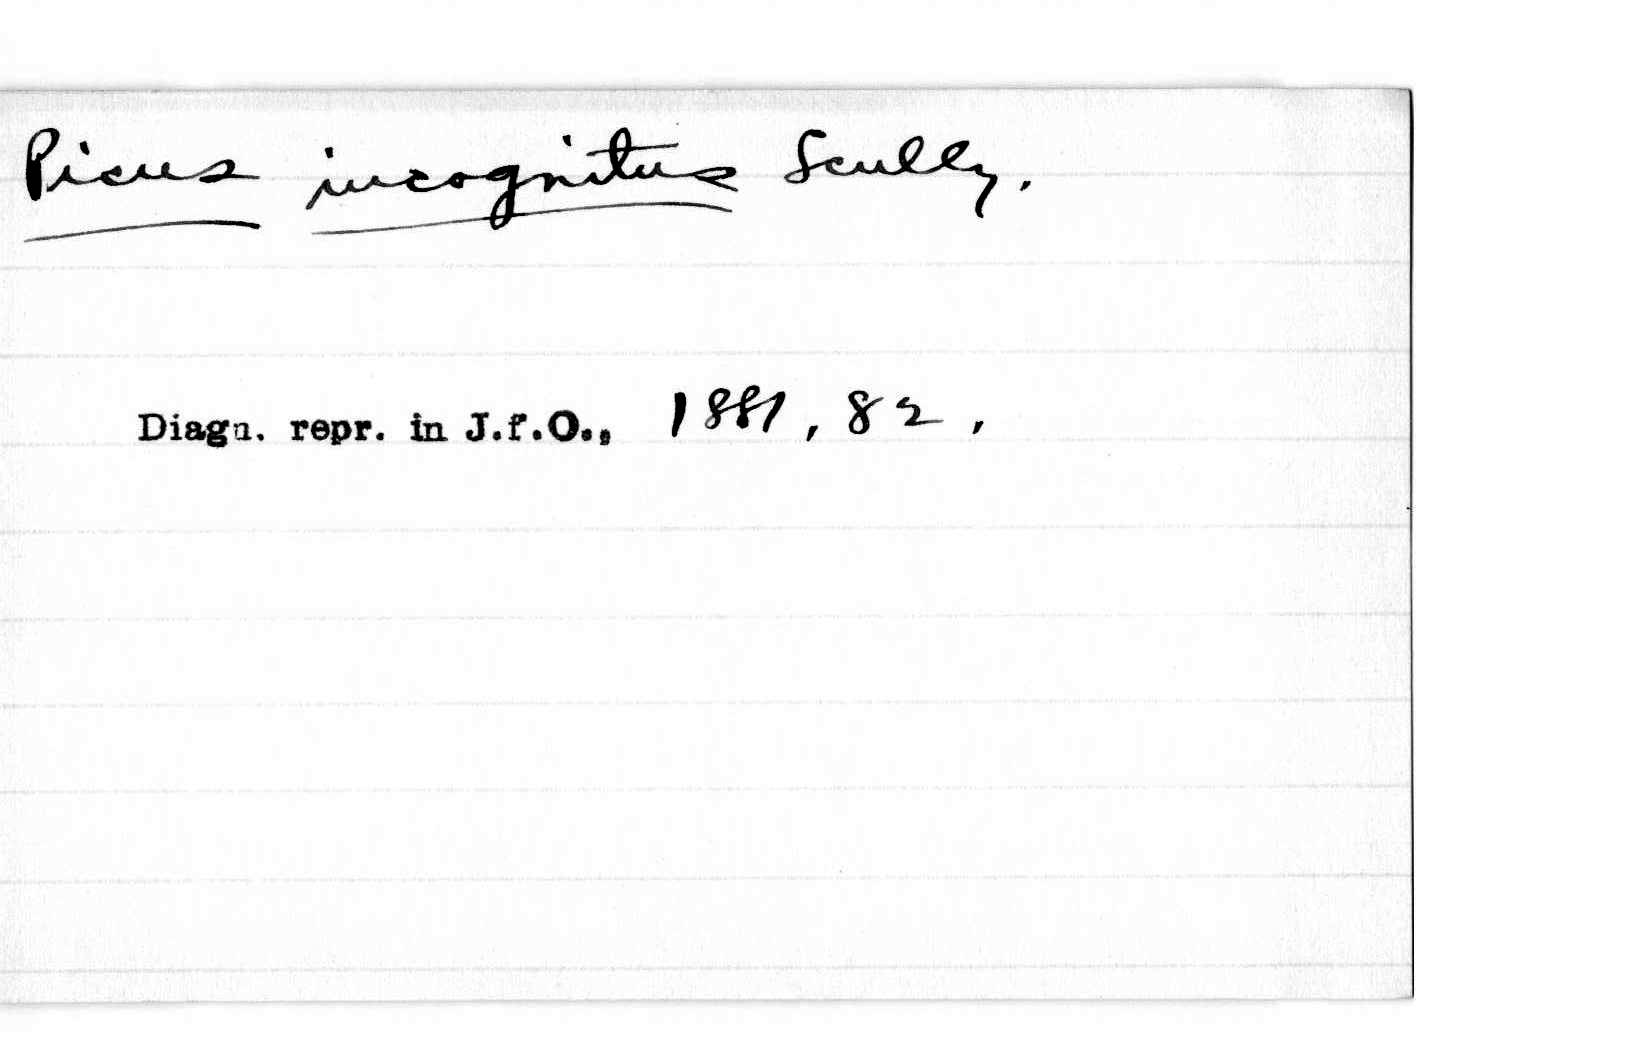 Picus incognitus Scully.
Diagn. repr. in J.f.O., 1881, 82.